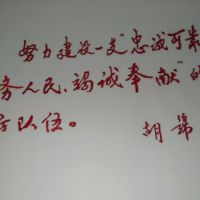 努力建设一支“忠诚可靠
务人民、竭诚奉献”的
队伍。
胡锦